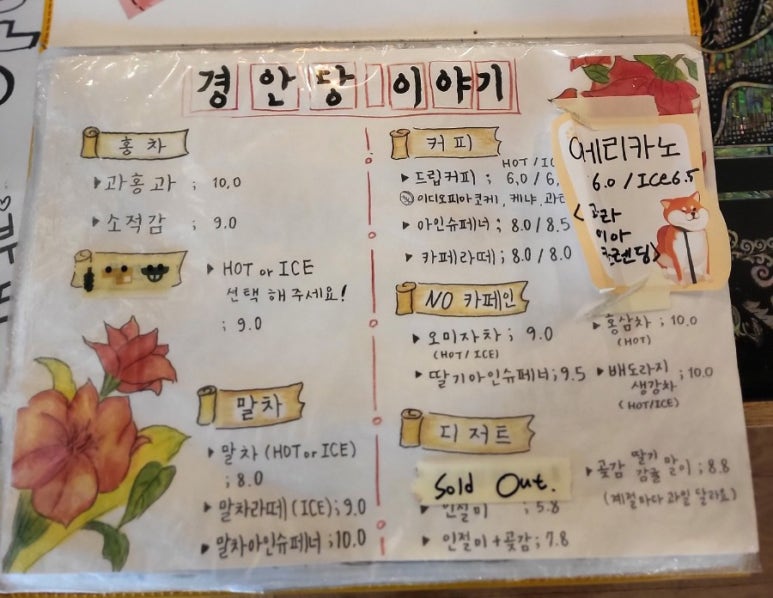 경안당 이야기
홍차
▸ 과홍과 ; 10.0
▸ 소적감 ; 9.0
▸ HOT or ICE
선택 해주세요!
; 9.0
말차
▸ 말차 (HOT or ICE)
; 8.0
▸ 말차라떼 (ICE) ; 9.0
▸ 말차아인슈페너 ; 10.0
커피
HOT / IC
▸ 드립커피 ; 6.0 / 6.
이디오피아 코케, 케냐, 과테
▸ 아인슈페너 ; 8.0 / 8.5
▸ 카페라떼 ; 8.0 / 8.0
아메리카노
6.0 / ICE 6.5
블렌딩>
NO 카페인
▸ 오미자차 ; 9.0
(HOT / ICE)
▸ 딸기아인슈페너 ; 9.5
▸ 홍삼차 ; 10.0
(HOT)
▸ 배도라지 생강차 ; 10.0
(HOT/ICE)
디저트
Sold Out.
인절미 ; 5.8
▸ 인절미 + 곶감 ; 7.8
▸ 곶감 딸기 감귤 말이 ; 8.8
(계절마다 과일 달라요)